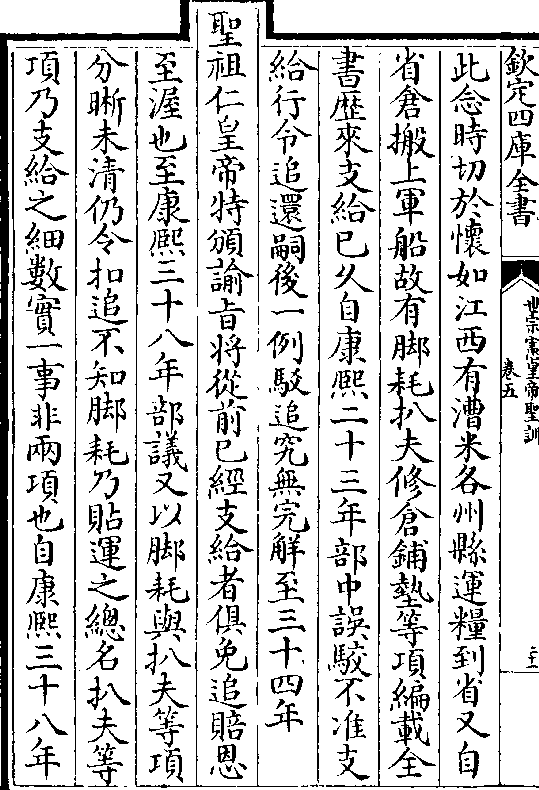 欽定四庫全書
世宗憲皇帝聖訓
卷五
二十一
此念時切於懷如江西有漕米各州縣運糧到省又自
省倉搬上軍船故有脚耗扒夫修倉鋪墊等項編載全
書歴來支給已久自康熙二十三年部中誤駮不准支
給行令追還嗣後一例駮追究無完解至三十四年
聖祖仁皇帝特頒諭旨將從前已經支給者俱免追賠恩
至渥也至康熙三十八年部議又以脚耗與扒夫等項
分晰未清仍令扣追不知脚耗乃貼運之總名扒夫等
項乃支給之細數實一事非兩項也自康熙三十八年